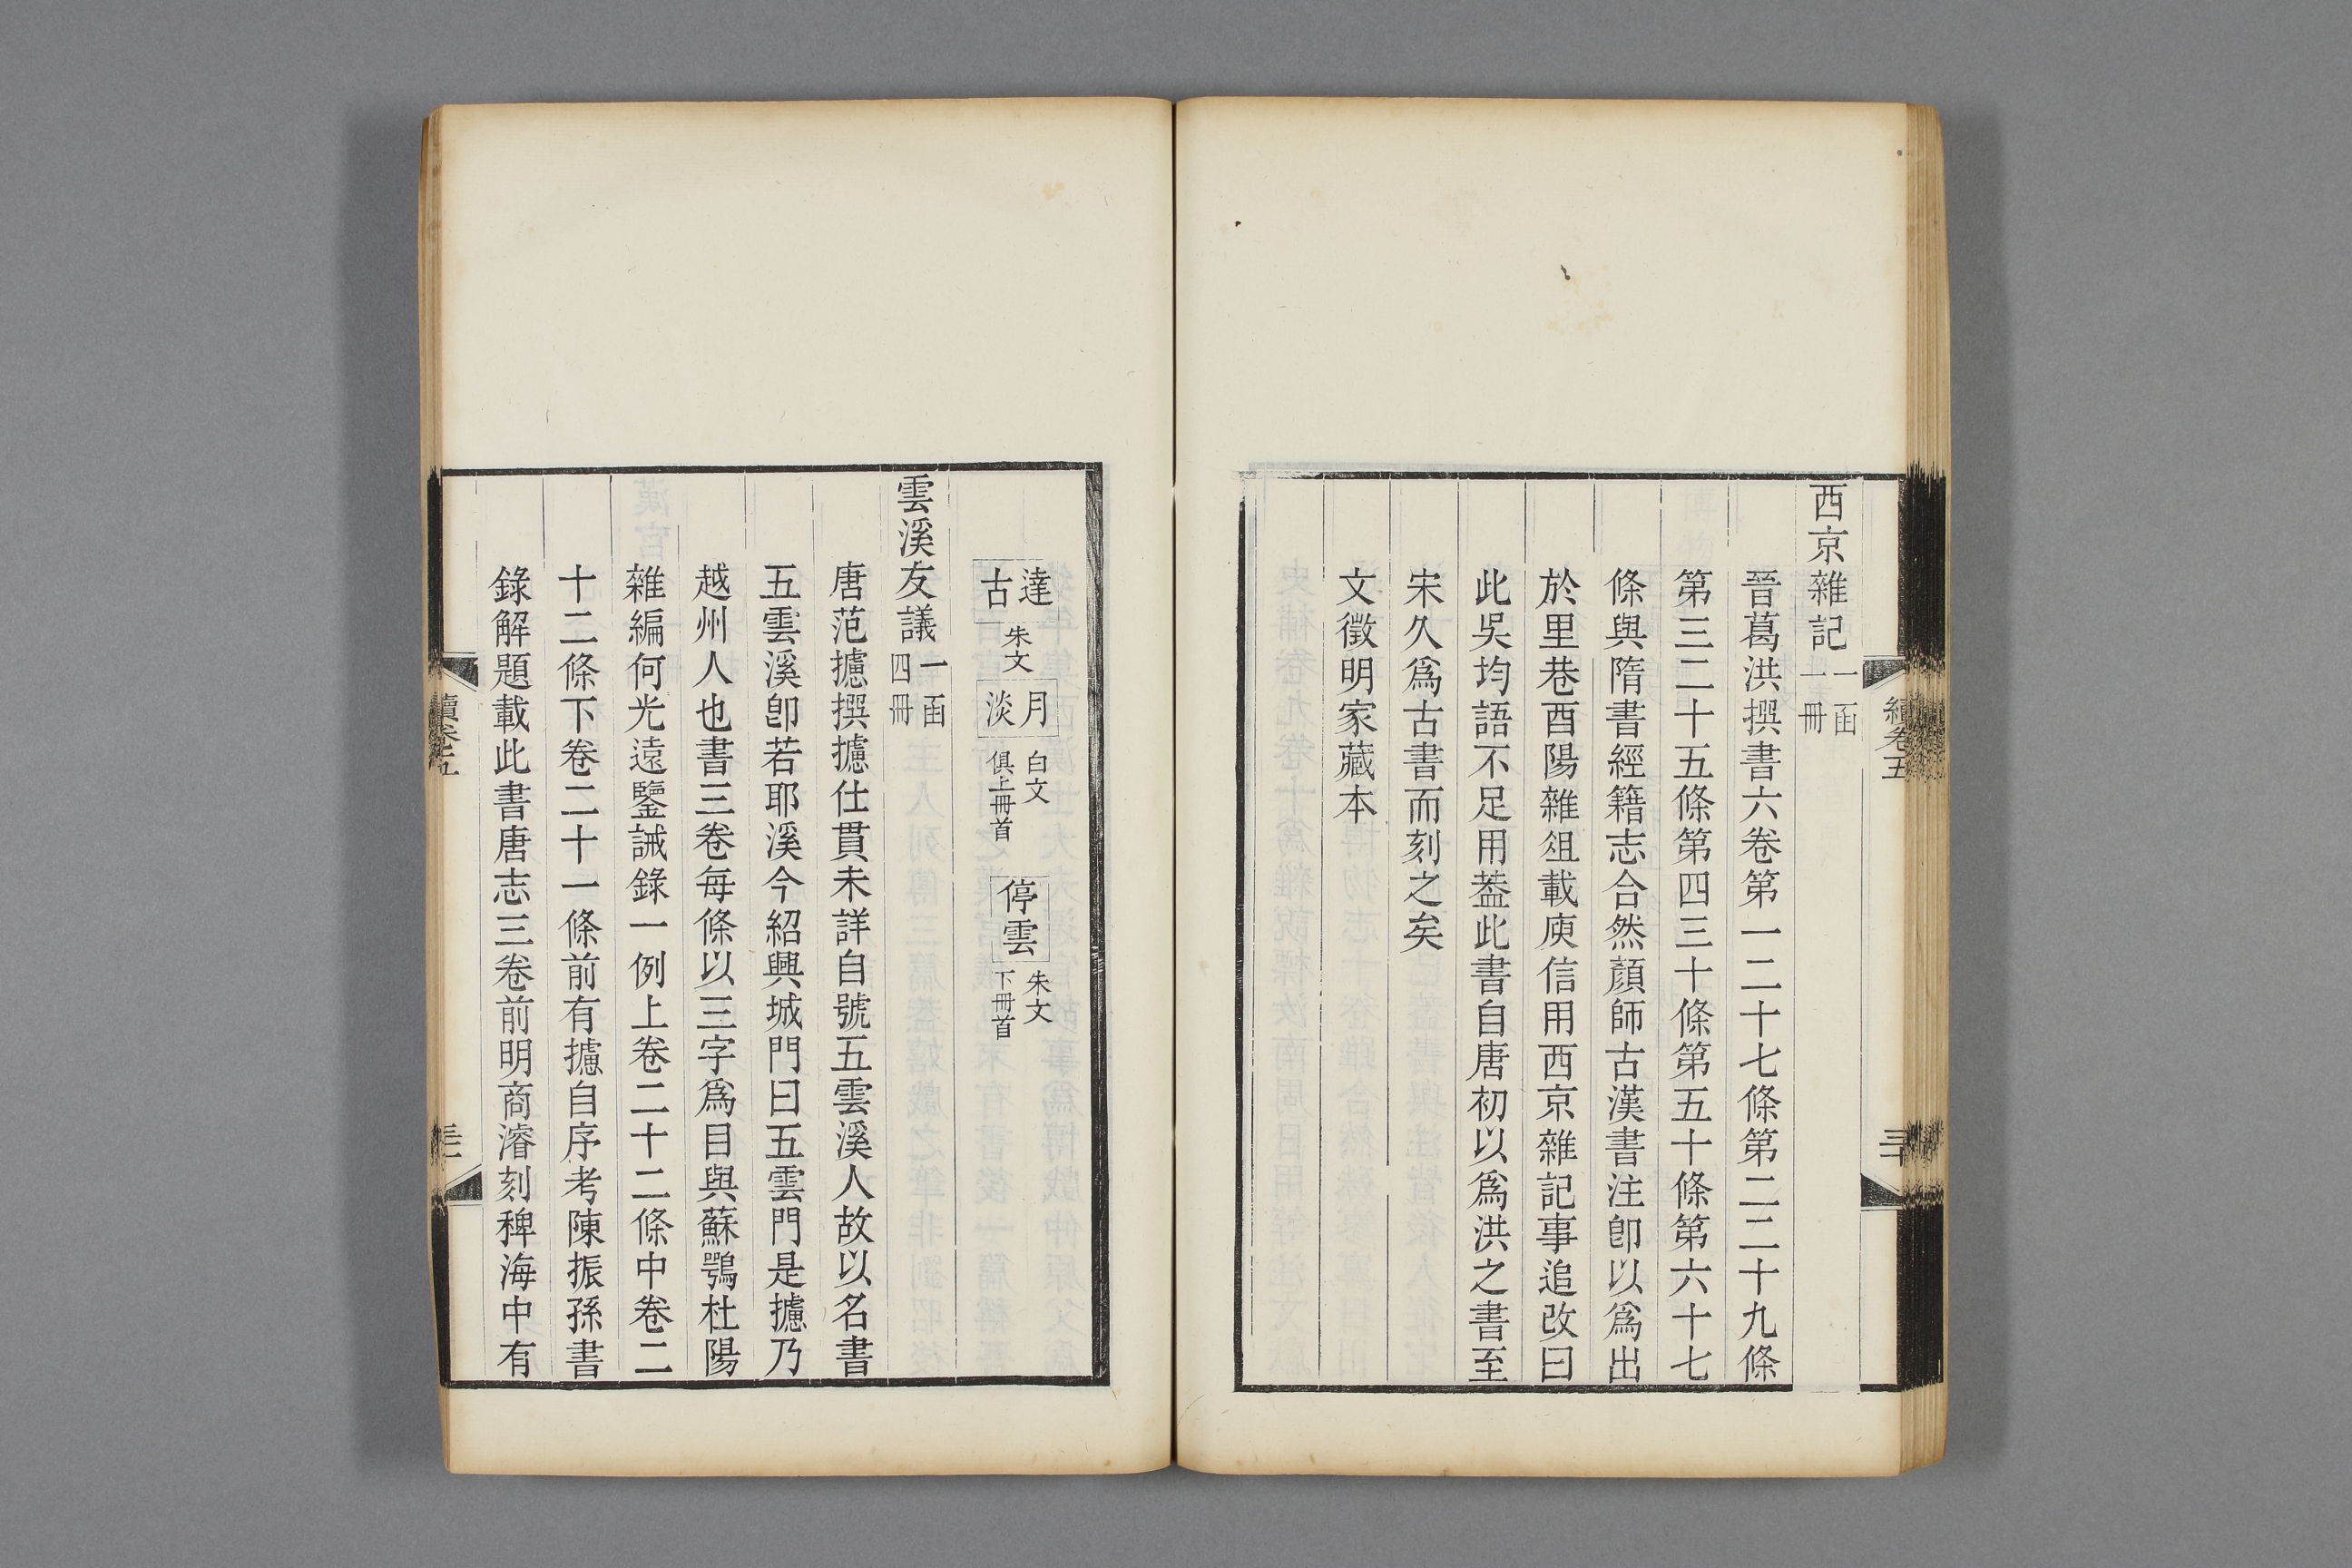 西京雜記一函一冊
晉葛洪撰書六卷第一二十七條第二二十九條
第三二十五條第四三十條第五十條第六十七
條與隋書經籍志合然顏師古漢書注卽以爲出
於里巷酉陽雜俎載庾信用西京雜記事追改曰
此吳均語不足用葢此書自唐初以爲洪之書至
宋久爲古書而刻之矣
文徵明家藏本
續卷五
三十
達古
朱文
月淡
白文俱上冊首
停雲
朱文下冊首
雲溪友議一函四冊
唐范攄撰攄仕貫未詳自號五雲溪人故以名書
五雲溪卽若耶溪今紹興城門曰五雲門是攄乃
越州人也書三卷每條以三字爲目與蘇鶚杜陽
雜編何光遠鑒誡錄一例上卷二十二條中卷二
十二條下卷二十一條前有攄自序考陳振孫書
錄解題載此書唐志三卷前明商濬刻稗海中有
續卷五